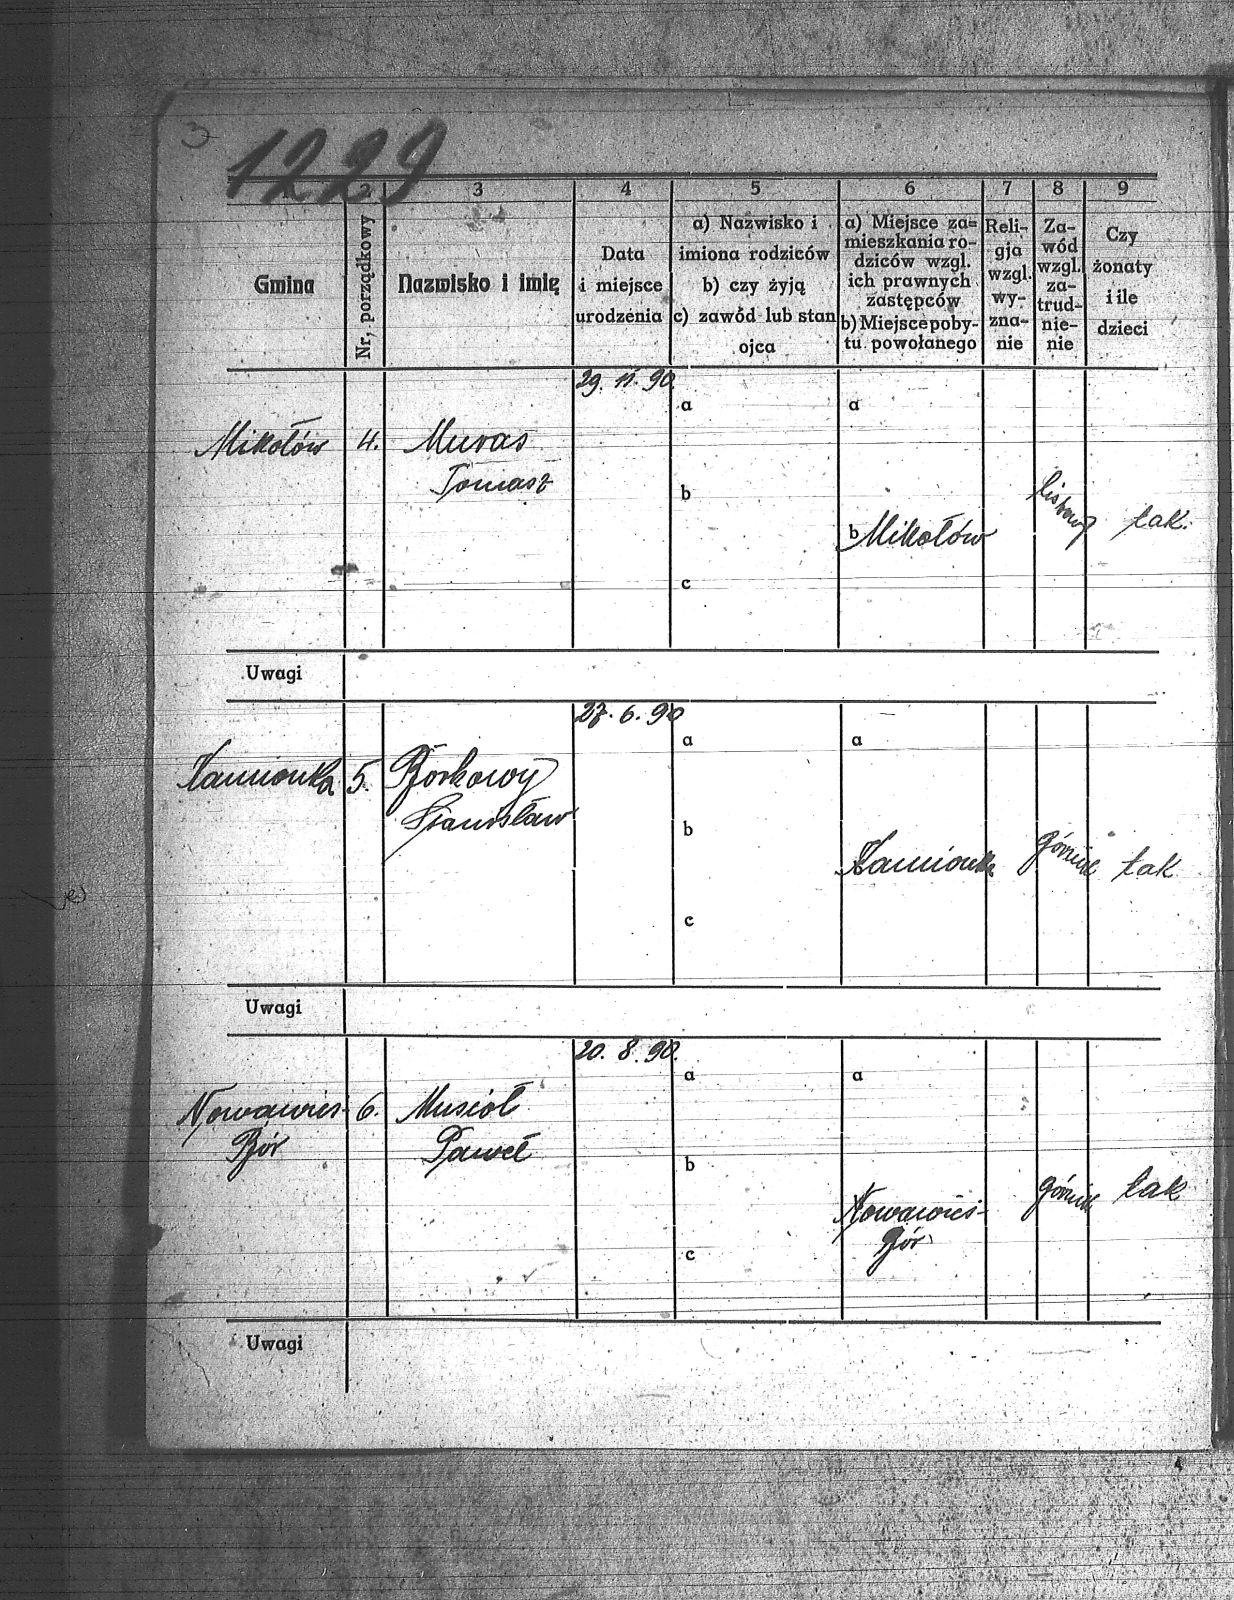 3
1229
2 3 4 5 6 7 8 9
Gmina
Nr. porządkowy
Nazwisko i imię
Data
i miejsce
urodzenia
a) Nazwisko i
imiona rodziców
b) czy żyją
c) zawód lub stan
ojca
a) Miejsce za=
mieszkania ro-
dziców wzgl.
ich prawnych
zastępców
b) Miejsce poby-
tu powołanego
Reli-
gja
wzgl.
wy-
zna-
nie
Za-
wód
wzgl.
za-
trud-
nie-
nie
Czy
żonaty
i ile
dzieci
29. 11. 90.
a a
Mikołów 4. Muras
Tomasz
b
b Mikołów listowy tak.
c
Uwagi
27. 6. 90
a a
Kamionka 5. Bórkowy
Stanisław
b
Kamionka górnik tak
c
Uwagi
20. 8. 90.
a a
Nowawieś- 6. Musioł
Bór Paweł
b
Nowawieś- górnik tak
Bór
c
Uwagi